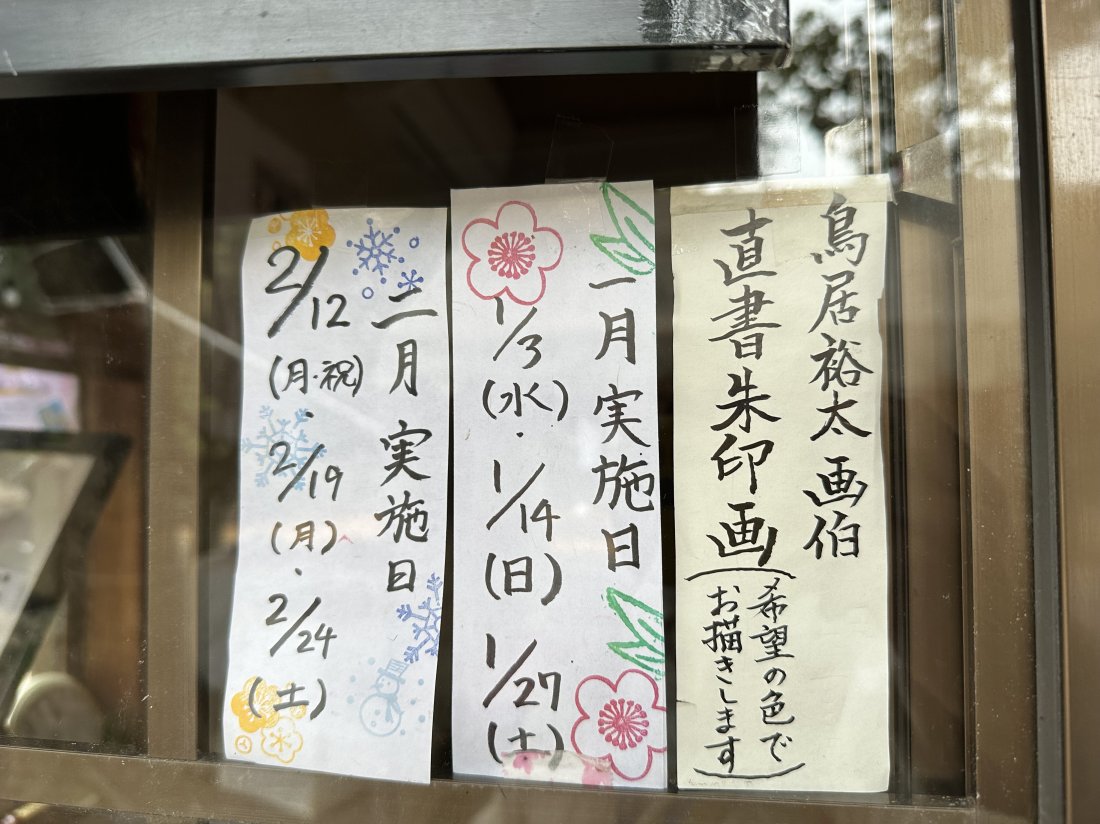 鳥居裕太画伯
直書朱印画
(希望の色で
お描きします)
一月実施日
1/3
(水)・
1/14
(日)
1/27
(土)
二月実施日
2/12
(月・祝)・
2/19
(月)・
2/24
(土)